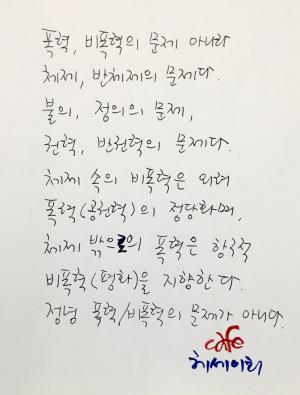 폭력, 비폭력의 문제 아니라
체제, 반체제의 문제다.
불의, 정의의 문제,
권력, 반권력의 문제다.
체제 속의 비폭력은 외려
폭력(공권력)의 정당화며,
체제 밖으로의 폭력은 항구적
비폭력(평화)을 지향한다.
정녕 폭력/비폭력의 문제가 아니다.
cafe